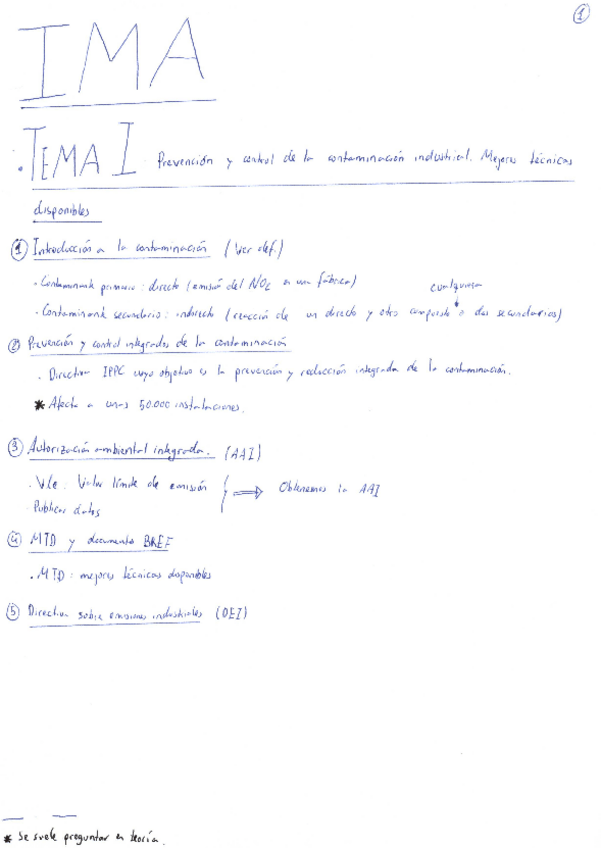 1
IMA
. TEMA I Prevención y control de la contaminación industrial. Mejores técnicas
disponibles
① Introducción a la contaminación (Ver def.)
. Contaminante primario: directo (emisión del NOx en una fábrica)
cualquiera
. Contaminante secundario: indirecto (reacción de un directo y otro compuesto o dos secundarios)
② Prevención y control integrados de la contaminación
. Directiva IPPC cuyo objetivo es la prevención y reducción integrada de la contaminación.
* Afecta a unas 50.000 instalaciones.
③ Autorización ambiental integrada. (AAI)
. VLe: Valor límite de emisión
⇒ Obtenemos la AAI
. Publicar datos
④ MTD y documento BREF
. MTD: mejores técnicas disponibles
⑤ Directiva sobre emisiones industriales (DEI)
* Se suele preguntar en teoría.